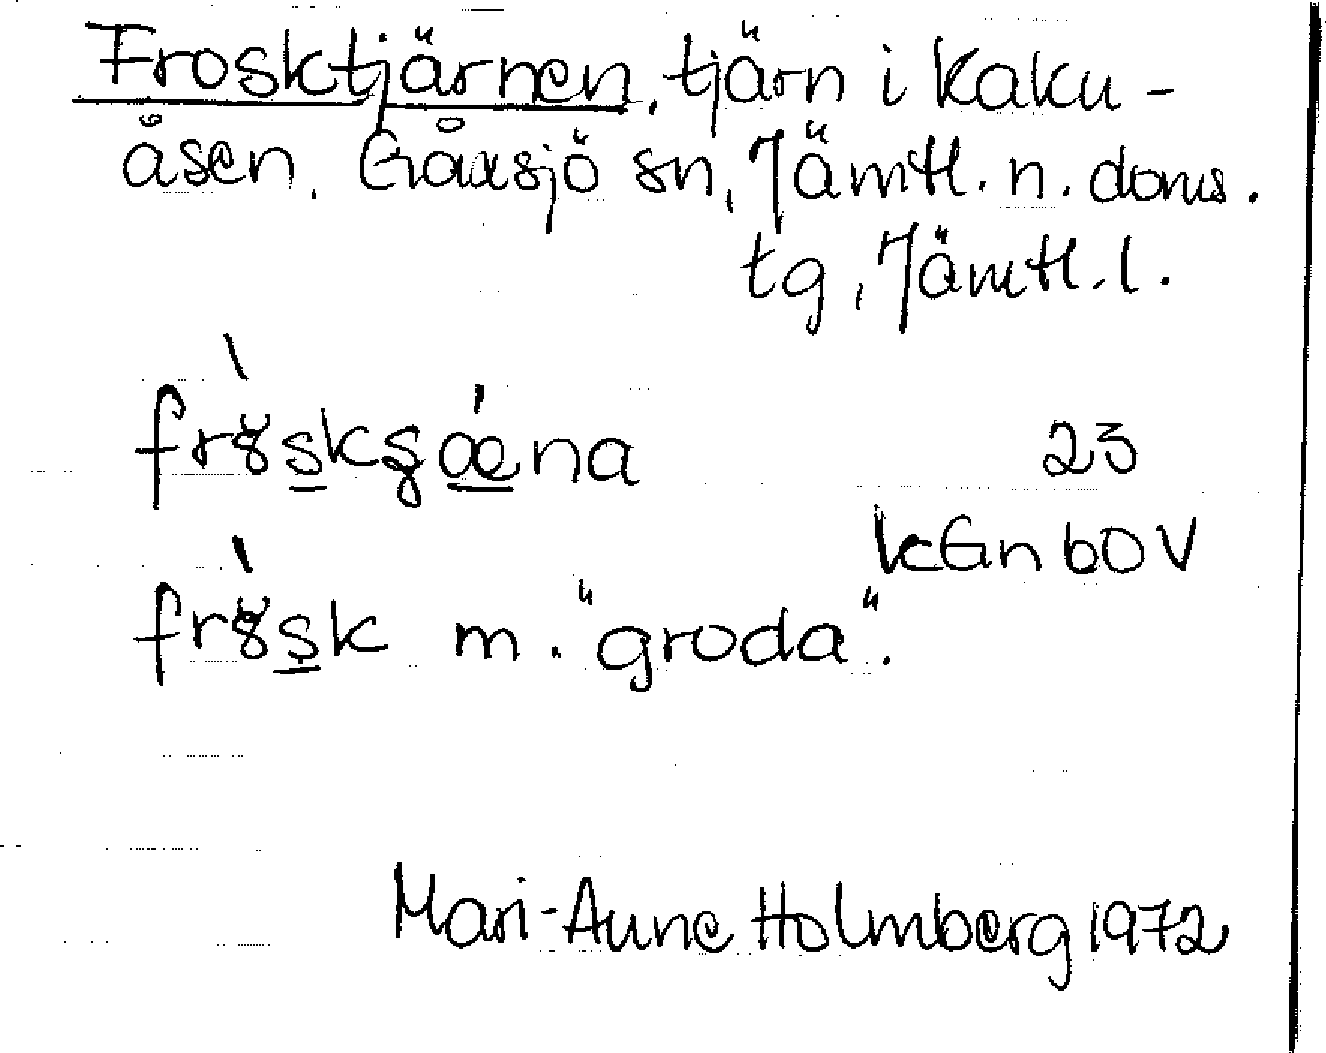 Frosktjärnen, tjärn i Kaku-
åsen, Gåxsjö sn, Jämtl. n. doms.
tg, Jämtl. l.
23
kGn 60 V
m. "groda".
Mari-Anne Holmberg 1972